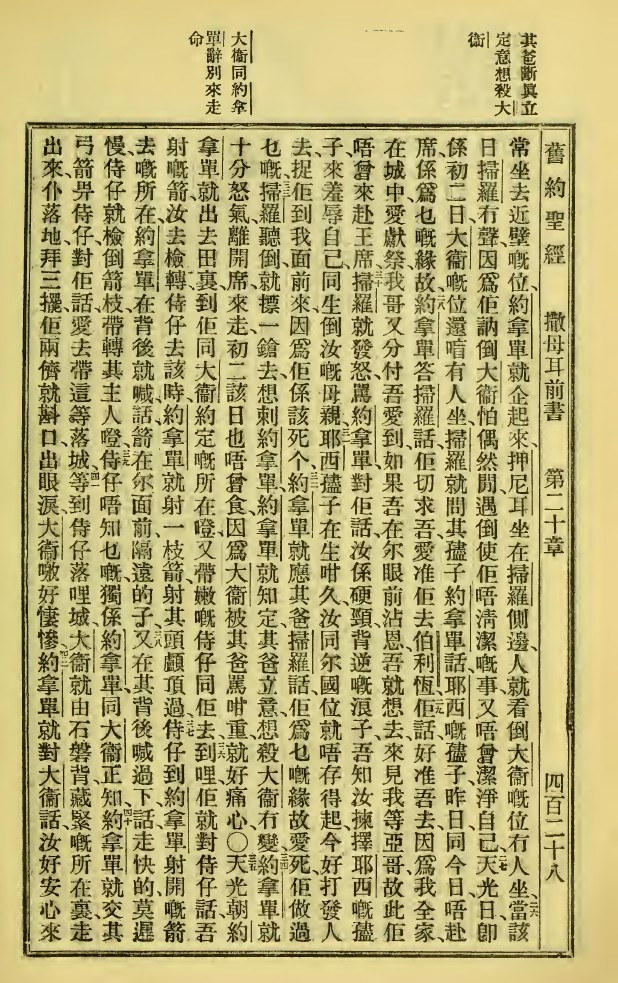 其爸斷眞立
定意想殺大
衞
大衞同約拿
單辭別來走
命
舊約聖經 撒母耳前書 第二十章 四百二十八
常坐去近壁嘅位約拿單就企起來押尼耳坐在掃羅側邊人就看倒大衞嘅位冇人坐當該
日掃羅冇聲因爲佢訥倒大衞怕偶然閒遇倒使佢唔淸潔嘅事又唔曾潔淨自己天光日卽
係初二日大衞嘅位還喑有人坐掃羅就問其𡥧子約拿單話耶西嘅𡥧子昨日同今日唔赴
席係爲乜嘅緣故約拿單答掃羅話佢切求吾愛准佢去伯利恆佢話好准吾去因爲我全家
在城中愛獻祭我哥又分付吾愛到如果吾在尔眼前沾恩吾就想去來見我等亞哥故此佢
唔曾來赴王席掃羅就發怒罵約拿單對佢話汝係硬頸背逆嘅浪子吾知汝揀擇耶西嘅𡥧
子來羞辱自己同生倒汝嘅母親耶西𡥧子在生咁久汝同尔國位就唔存得起今好打發人
去捉佢到我面前來因爲佢係該死个約拿單就應其爸掃羅話佢爲乜嘅緣故愛死佢做過
乜嘅掃羅聽倒就摽一鎗去想刺約拿單約拿單就知定其爸立意想殺大衞有變約拿單就
十分怒氣離開席來走初二該日也唔曾食因爲大衞被其爸罵咁重就好痛心〇天光朝約
拿單就出去田裏到佢同大衞約定嘅所在噔又帶嫩嘅侍仔同佢去到哩佢就對侍仔話吾
射嘅箭汝去檢轉侍仔去該時約拿單就射一枝箭射其頭顱頂過侍仔到約拿單射開嘅箭
去嘅所在約拿單在背後就喊話箭在尔面前隔遠的子又在其背後喊過下話走快的莫遲
慢侍仔就檢倒箭枝帶轉其主人噔侍仔唔知乜嘅獨係約拿單同大衞正知約拿單就交其
弓箭畀侍仔對佢話愛去帶這等落城等到侍仔落哩城大衞就由石磐背藏緊嘅所在裏走
出來仆落地拜三擺佢兩儕就斟口出眼淚大衞噭好悽慘約拿單就對大衞話汝好安心來